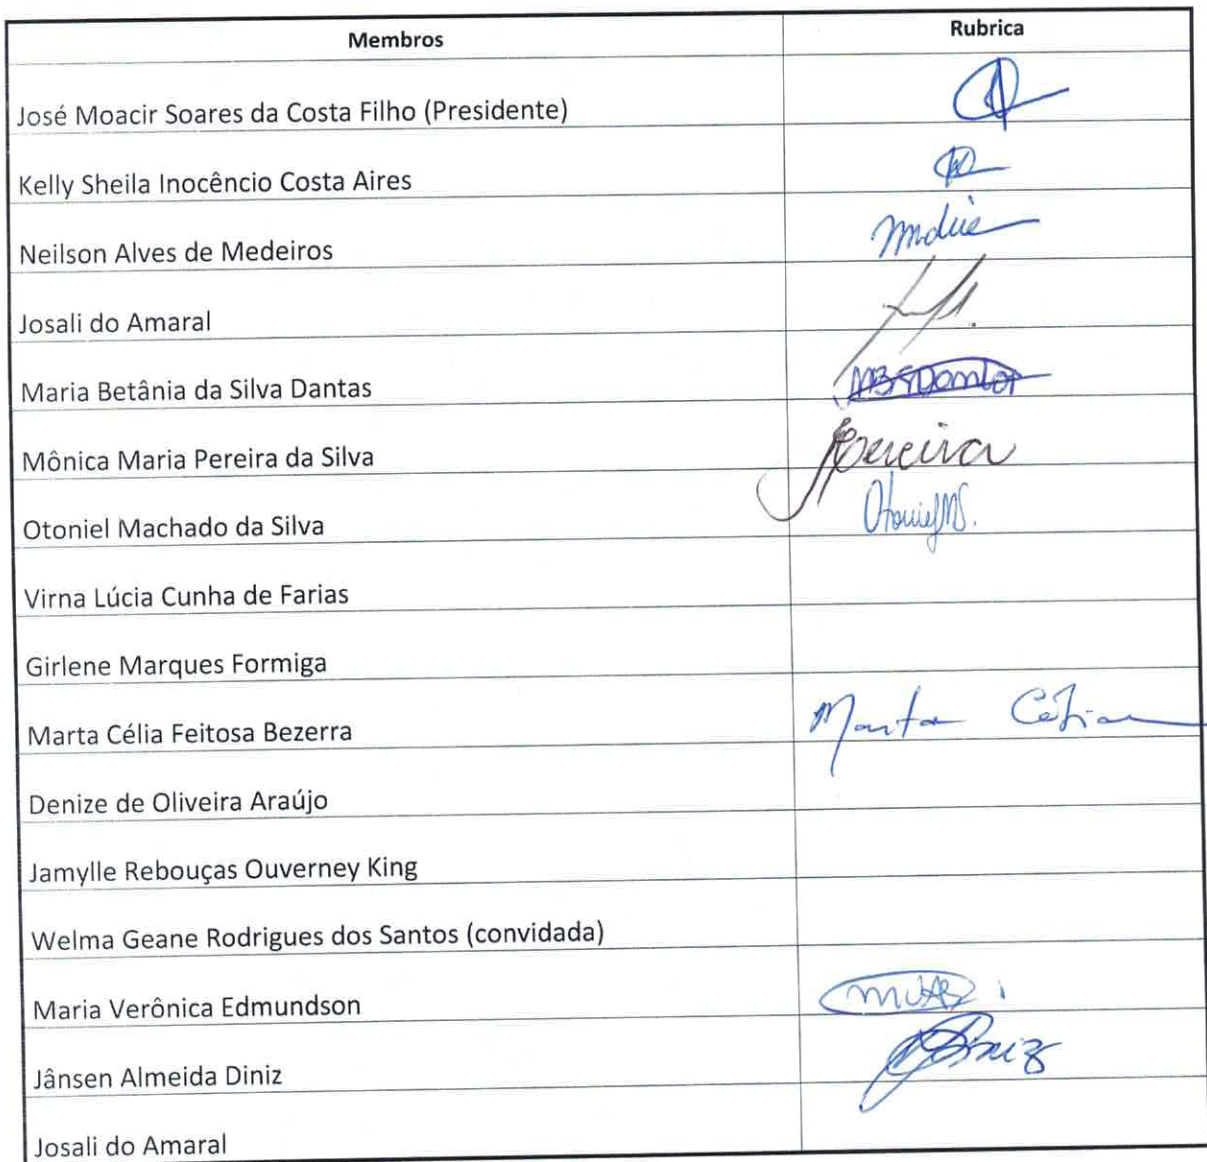 Membros Rubrica
José Moacir Soares da Costa Filho (Presidente)
Kelly Sheila Inocêncio Costa Aires
Neilson Alves de Medeiros
Josali do Amaral
Maria Betânia da Silva Dantas MBSDantas
Mônica Maria Pereira da Silva Pereira
Otoniel Machado da Silva OtonielMS.
Virna Lúcia Cunha de Farias
Girlene Marques Formiga
Marta Célia Feitosa Bezerra Marta Célia
Denize de Oliveira Araújo
Jamylle Rebouças Ouverney King
Welma Geane Rodrigues dos Santos (convidada)
Maria Verônica Edmundson
Jânsen Almeida Diniz Diniz
Josali do Amaral